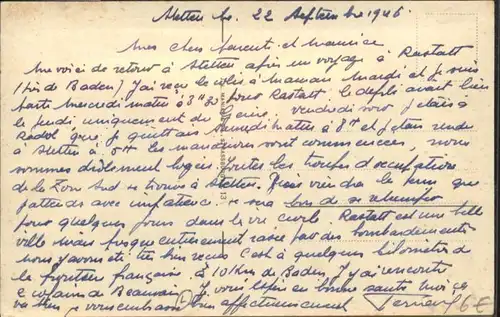 Stetten le 22 Septembre 1946
Mes chers parents et Maurice
Me voici de retour à Stetten après un voyage à Rastatt
(près de Baden) J'ai reçu le colis de Maman Mardi et je suis
parti Mercredi matin à 3h30 pour Rastatt. Le défilé avait lieu
le jeudi uniquement du Génie, vendredi soir j'étais à
que je quittais Samedi matin à 8h et j'étais rendu
à Stetten à les manœuvres sont commencées, nous
sommes drôlement logés toutes les troupes d'occupation
de la Zone Sud se trouve à Stetten. Bien vrai le jour que
j'attends avec impatience sera bon de se retremper
pour quelques jours dans la vie civile. Rastatt est une belle
ville mais presque entièrement rasée par des bombardements
nous y avons été très bien reçus C'est à quelques kilomètres de
la frontière française. à 10 Kms de Baden, J'y ai rencontré
2 copains de Beauvais. Je vous espère en bonne santé moi ça
va bien je vous embrasse bien affectueusement
6€